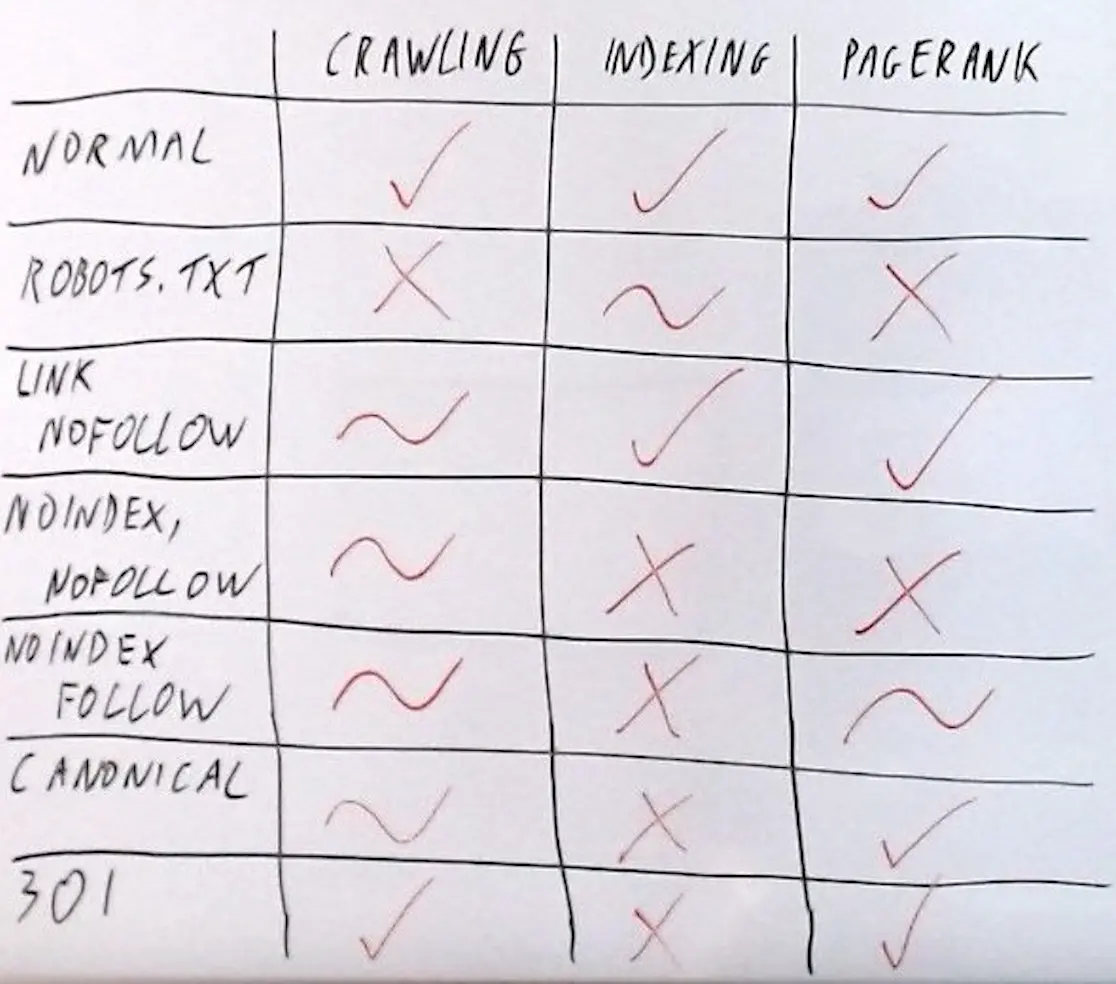 CRAWLING INDEXING PAGERANK
NORMAL ✓ ✓ ✓
ROBOTS.TXT ✗ ~ ✗
LINK
NOFOLLOW ~ ✓ ✓
NOINDEX,
NOFOLLOW ~ ✗ ✗
NOINDEX
FOLLOW ~ ✗ ~
CANONICAL ~ ✗ ✓
301 ✓ ✗ ✓